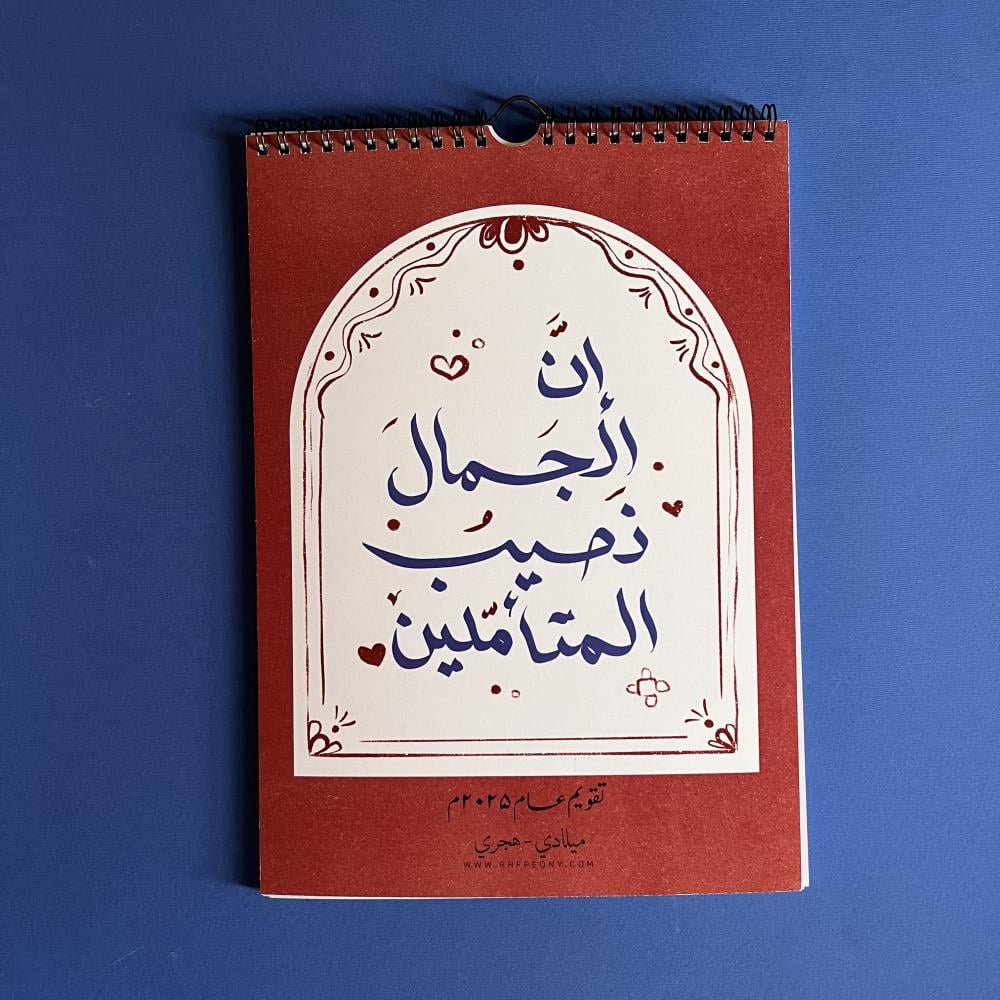 إنَّ
الجَمالَ
نَصيبُ
المتأمّلين
تقويم عام ٢٠٢٥م
ميلادي - هجري
WWW.RHFPEONY.COM